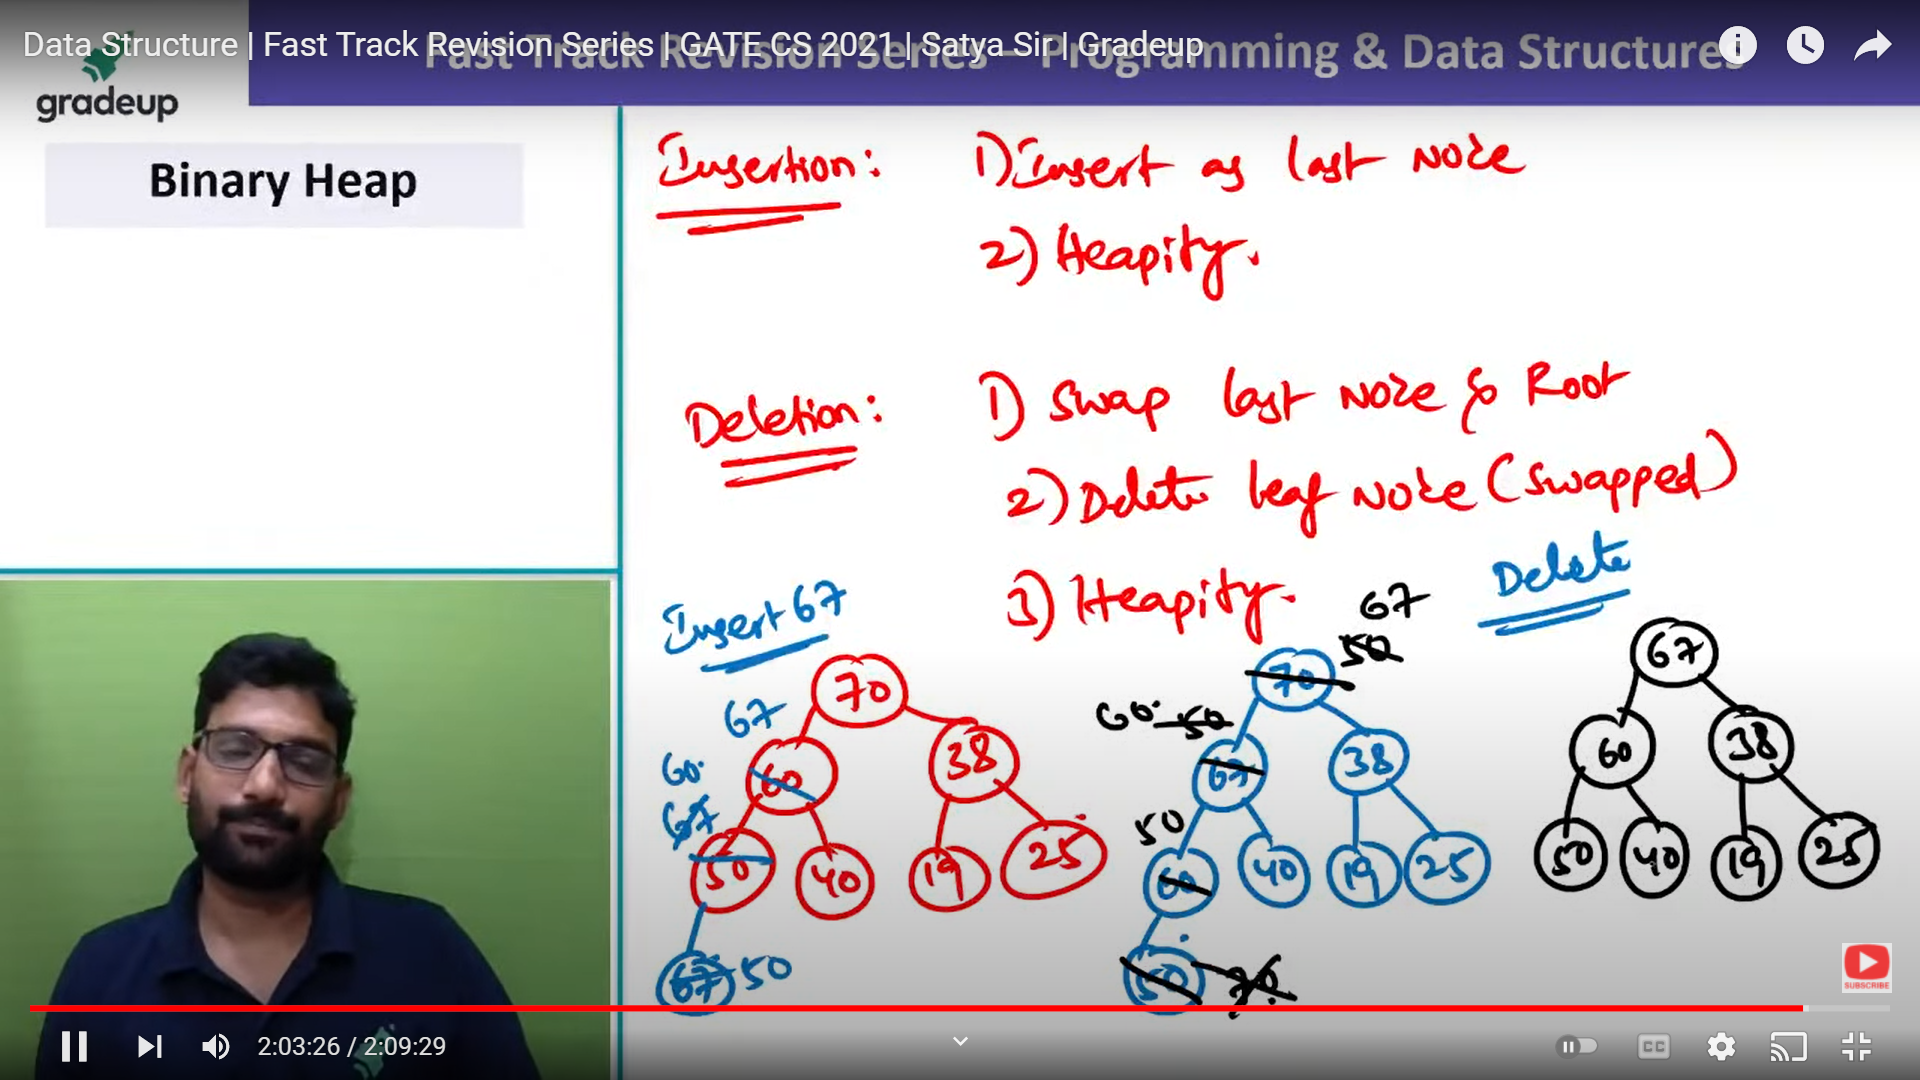 Data Structure | Fast Track Revision Series | GATE CS 2021 | Satya Sir | Gradeup
Fast Track Revision Series – Programming & Data Structures
gradeup
Binary Heap
Insertion: 1) Insert as last Node
2) Heapify.
Deletion: 1) Swap last Node & Root
2) Delete leaf Node (Swapped)
3) Heapify.
Insert 67
67
70
60
38
60
67
50
40
19
25
67
50
67
50
70
60
50
67
38
50
60
40
19
25
50
70
Delete
67
60
38
50
40
19
25
SUBSCRIBE
2:03:26 / 2:09:29
CC